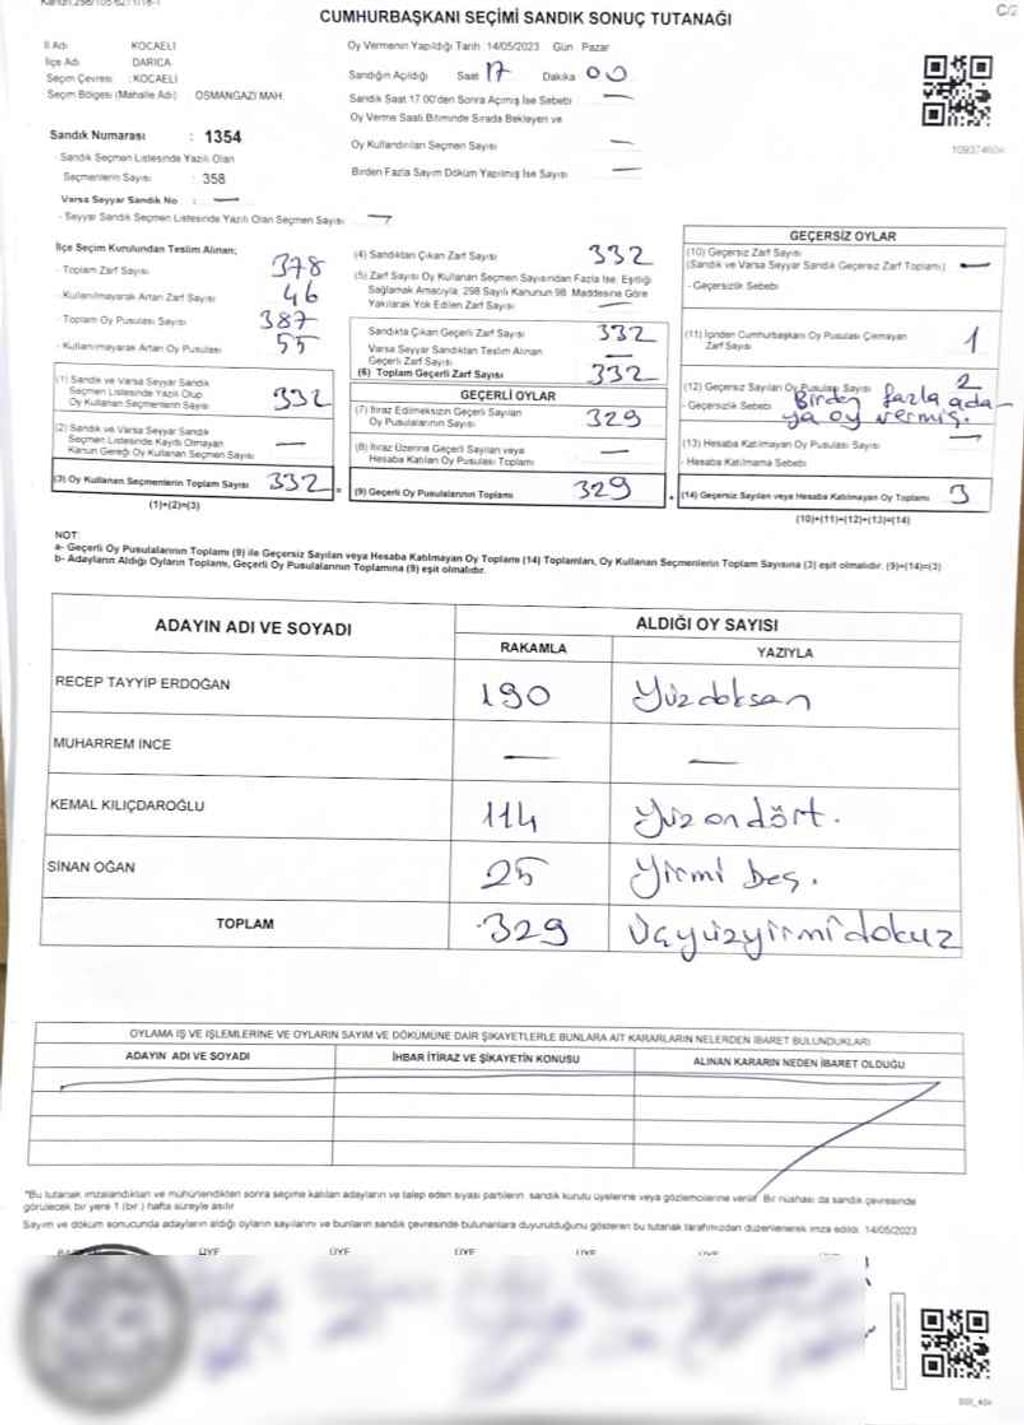 Kanun:298/105-6271/16-1
C/2
CUMHURBAŞKANI SEÇİMİ SANDIK SONUÇ TUTANAĞI
İl Adı KOCAELİ
İlçe Adı DARICA
Seçim Çevresi : KOCAELİ
Seçim Bölgesi (Mahalle Adı) OSMANGAZİ MAH.
Sandık Numarası : 1354
- Sandık Seçmen Listesinde Yazılı Olan
Seçmenlerin Sayısı : 358
Varsa Seyyar Sandık No : —
- Seyyar Sandık Seçmen Listesinde Yazılı Olan Seçmen Sayısı —
Oy Vermenin Yapıldığı Tarih :14/05/2023 Gün : Pazar
Sandığın Açıldığı Saat 17 Dakika 00
Sandık Saat 17.00'den Sonra Açılmış İse Sebebi —
Oy Verme Saati Bitiminde Sırada Bekleyen ve
Oy Kullandırılan Seçmen Sayısı —
Birden Fazla Sayım Döküm Yapılmış İse Sayısı —
İlçe Seçim Kurulundan Teslim Alınan;
- Toplam Zarf Sayısı 378
- Kullanılmayarak Artan Zarf Sayısı 46
- Toplam Oy Pusulası Sayısı 387
- Kullanılmayarak Artan Oy Pusulası 55
(1) Sandık ve Varsa Seyyar Sandık
Seçmen Listesinde Yazılı Olup
Oy Kullanan Seçmenlerin Sayısı 332
(2) Sandık ve Varsa Seyyar Sandık
Seçmen Listesinde Kaydı Olmayan
Kanun Gereği Oy Kullanan Seçmen Sayısı —
(3) Oy Kullanan Seçmenlerin Toplam Sayısı 332
(1)+(2)=(3)
(4) Sandıktan Çıkan Zarf Sayısı 332
(5) Zarf Sayısı Oy Kullanan Seçmen Sayısından Fazla İse, Eşitliği
Sağlamak Amacıyla, 298 Sayılı Kanunun 98. Maddesine Göre
Yakılarak Yok Edilen Zarf Sayısı —
Sandıkta Çıkan Geçerli Zarf Sayısı 332
Varsa Seyyar Sandıktan Teslim Alınan
Geçerli Zarf Sayısı —
(6) Toplam Geçerli Zarf Sayısı 332
GEÇERLİ OYLAR
(7) İtiraz Edilmeksizin Geçerli Sayılan
Oy Pusulalarının Sayısı 329
(8) İtiraz Üzerine Geçerli Sayılan veya
Hesaba Katılan Oy Pusulası Toplamı —
(9) Geçerli Oy Pusulalarının Toplamı 329
GEÇERSİZ OYLAR
(10) Geçersiz Zarf Sayısı
(Sandık ve Varsa Seyyar Sandık Geçersiz Zarf Toplamı) —
- Geçersizlik Sebebi
(11) İçinden Cumhurbaşkanı Oy Pusulası Çıkmayan
Zarf Sayısı 1
(12) Geçersiz Sayılan Oy Pusulası Sayısı 2
- Geçersizlik Sebebi Birden fazla ada-
ya oy vermiş.
(13) Hesaba Katılmayan Oy Pusulası Sayısı —
- Hesaba Katılmama Sebebi
(14) Geçersiz Sayılan veya Hesaba Katılmayan Oy Toplamı 3
(10)+(11)+(12)+(13)=(14)
NOT:
a- Geçerli Oy Pusulalarının Toplamı (9) ile Geçersiz Sayılan veya Hesaba Katılmayan Oy Toplamı (14) Toplamları, Oy Kullanan Seçmenlerin Toplam Sayısına (3) eşit olmalıdır. (9)+(14)=(3)
b- Adayların Aldığı Oyların Toplamı, Geçerli Oy Pusulalarının Toplamına (9) eşit olmalıdır.
ADAYIN ADI VE SOYADI ALDIĞI OY SAYISI
RAKAMLA YAZIYLA
RECEP TAYYİP ERDOĞAN 190 Yüzdoksan
MUHARREM İNCE — —
KEMAL KILIÇDAROĞLU 114 Yüz on dört.
SİNAN OĞAN 25 Yirmi beş.
TOPLAM 329 Üçyüzyirmidokuz
OYLAMA İŞ VE İŞLEMLERİNE VE OYLARIN SAYIM VE DÖKÜMÜNE DAİR ŞİKAYETLERLE BUNLARA AİT KARARLARIN NELERDEN İBARET BULUNDUKLARI
ADAYIN ADI VE SOYADI İHBAR İTİRAZ VE ŞİKAYETİN KONUSU ALINAN KARARIN NEDEN İBARET OLDUĞU
*Bu tutanak, imzalandıktan ve mühürlendikten sonra seçime katılan adayların ve talep eden siyasi partilerin sandık kurulu üyelerine veya gözlemcilerine verilir. Bir nüshası da sandık çevresinde
görülecek bir yere 1 (bir ) hafta süreyle asılır.
Sayım ve döküm sonucunda adayların aldığı oyların sayılarını ve bunların sandık çevresinde bulunanlara duyurulduğunu gösteren bu tutanak tarafımızdan düzenlenerek imza edildi. 14/05/2023
ÜYE ÜYE ÜYE ÜYE